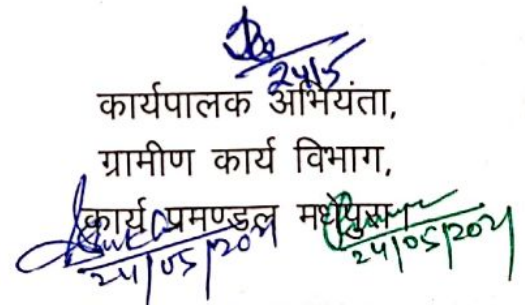 24/5
कार्यपालक अभियंता,
ग्रामीण कार्य विभाग,
कार्य प्रमण्डल मधेपुरा।
24/05/2021 24/05/2021